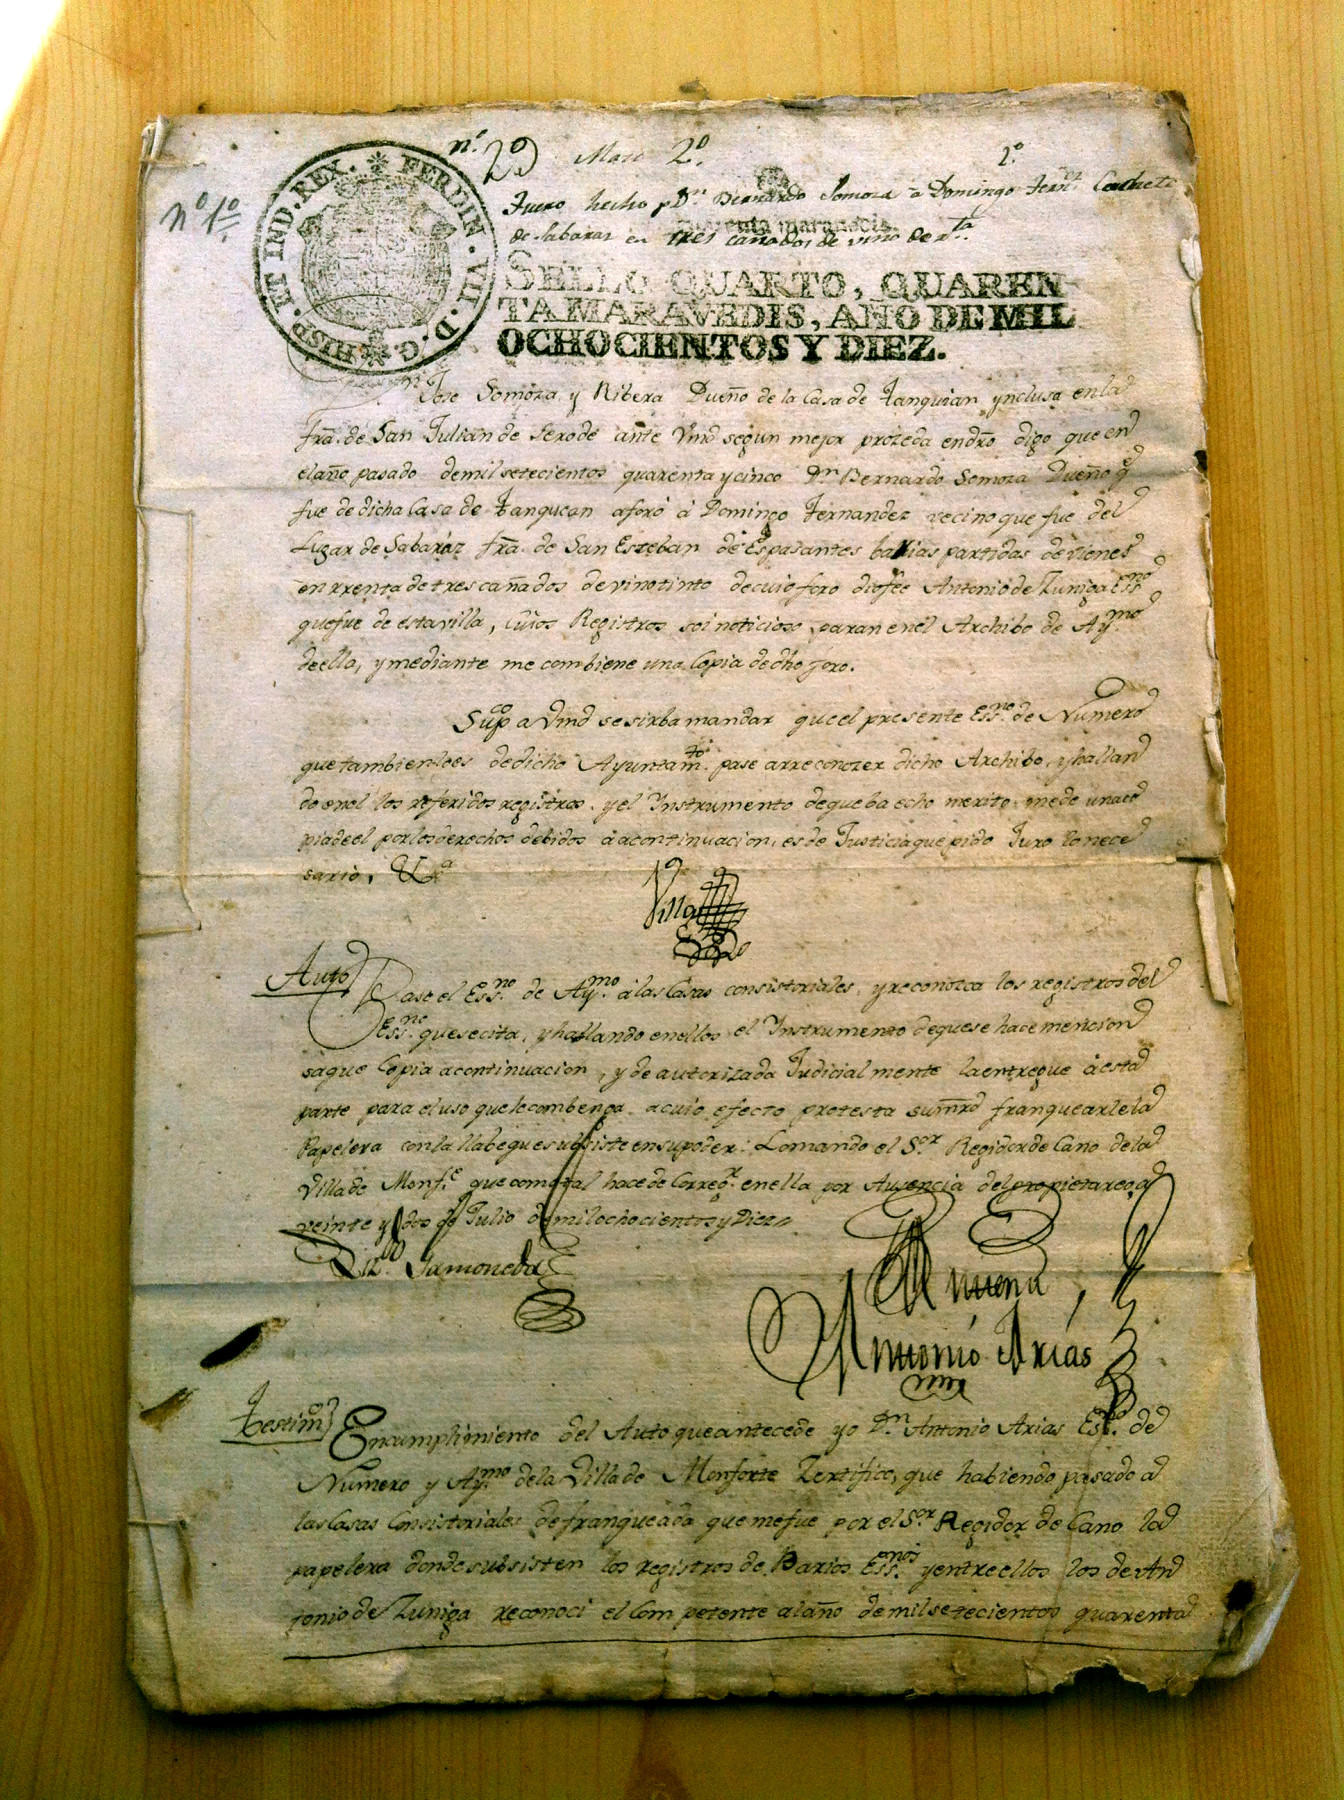 nº 29 Mazo 2º. 2º
Nº 1º.
Fuero hecho p Dn Bernardo Somoza a Domingo Fernz
de Sabaraz en tres cañados de vino de rta
quarenta maravedis
HISP. ET IND. REX. * FERDIN. VII. D. G. *
SELLO QUARTO, QUAREN
TA MARAVEDIS, AÑO DE MIL
OCHOCIENTOS Y DIEZ.
Dn Jose Somoza y Ribera Dueño de la Casa de Tanquian ynclusa en la
fra. de San Julian de Serode ante Vmd segun mejor prozeda en dro digo que en
el año pasado de mil setecientos quarenta y cinco Dn Bernardo Somoza Dueño q
fue de dicha Casa de Tanquian aforó á Domingo Fernandez vecino que fue del
Lugar de Sabaraz fra. de San Esteban de Espasantes barias partidas de vienes
en rrenta de tres cañados de vino tinto de cuio foro dio fee Antonio de Zuniga Essno
que fue de esta villa, cuios Registros soi noticioso paran en el Archibo de Aymo
de ella, y mediante me combiene una Copia de dho foro.
Suppco a Vmd se sirba mandar que el presente Essno. de Numero
que tambien lo es de dicho Ayuntamto. pase a rreconozer dicho Archibo, y hallan
do en el los referidos registros y el Ynstrumento de que ba echo merito me de una co
pia de el por los derechos debidos á a continuacion, es de Justicia que pido Juro lo nece
sario, &a
Villa
Auto
Pase el Essno de Aymo á las Casas consistoriales, y reconozca los registros del
Essno. que se cita, y hallando en ellos el Ynstrumento de que se hace mencion
saque Copia a continuacion, y de autorizada Judicialmente la entregue á esta
parte para el uso que le combenga a cuio efecto protesta su mrd franquearle la
Papelera con la llabe que subsiste en su poder: Lo mando el Sor Regidor de Cano de la
Villa de Monfe que como tal hace de Corregr. en ella por Ausencia del propietareo á
veinte y dos de Julio de mil ochocientos y Diez
Jamoneda
Antonio Arias
Testimo
En cumplimiento del Auto que antecede yo Dn Antonio Arias Esno. de
Numero y Aymo de la Villa de Monforte Zertifico, que habiendo pasado a
las Casas Consistoriales de franqueada que me fue por el Sor Regidor de Cano la
papelera donde subsisten los registros de Barios Essanos y entre ellos los de An
tonio de Zuniga reconoci el Competente al año de mil setecientos quarenta